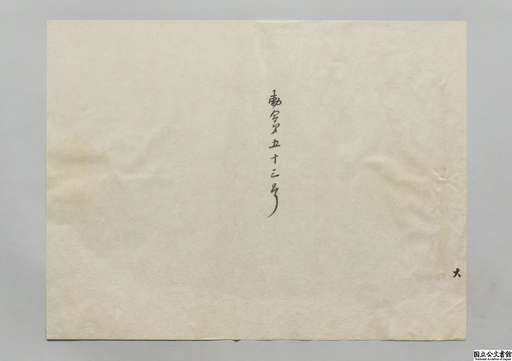 勅令第五十三号
大
国立公文書館
National Archives of Japan